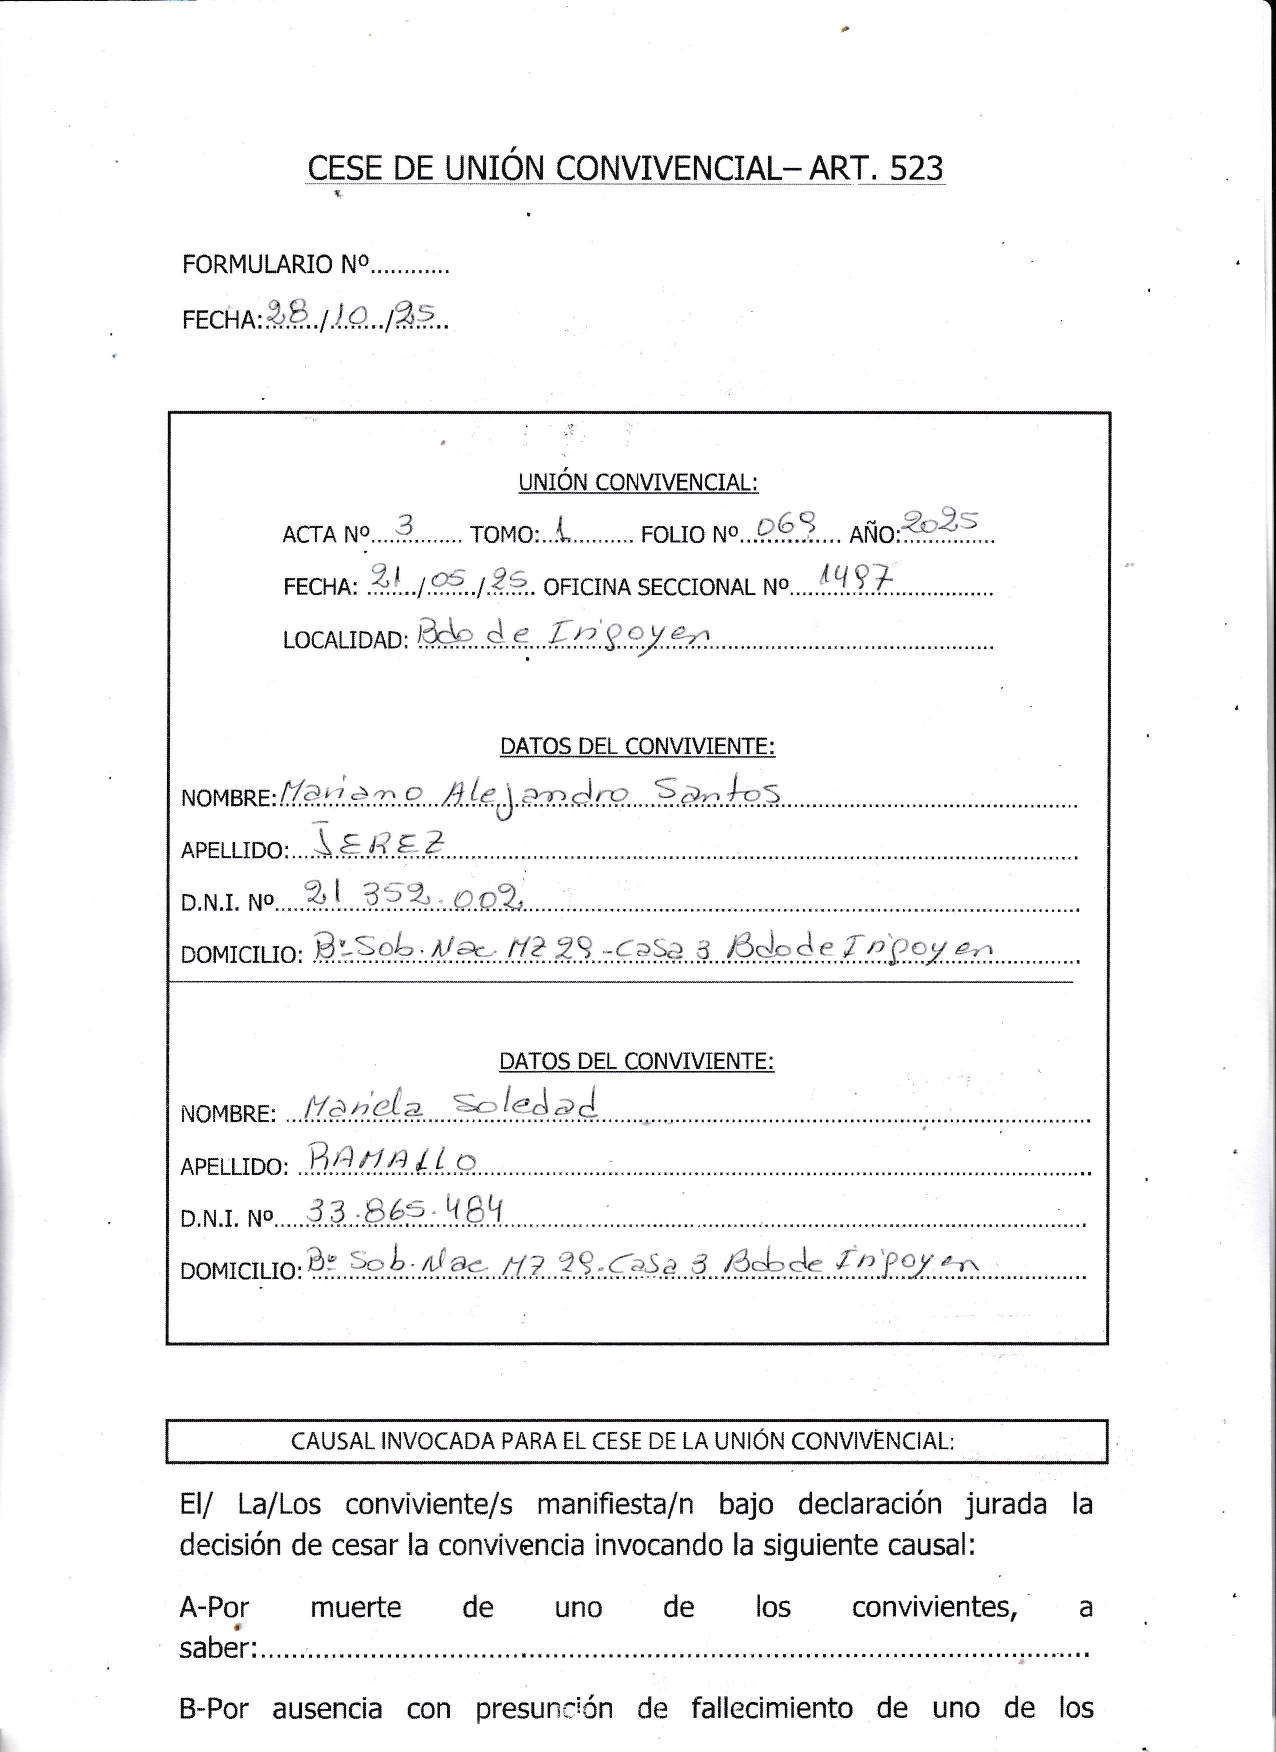 CESE DE UNIÓN CONVIVENCIAL– ART. 523
FORMULARIO Nº............
FECHA: 28 / 10 / 25
UNIÓN CONVIVENCIAL:
ACTA Nº 3 TOMO: 1 FOLIO Nº 069 AÑO: 2025
FECHA: 21 / 05 / 25 OFICINA SECCIONAL Nº 1497
LOCALIDAD: Bdo de Irigoyen
DATOS DEL CONVIVIENTE:
NOMBRE: Mariano Alejandro Santos
APELLIDO: JEREZ
D.N.I. Nº 21 352.002
DOMICILIO: Bº Sob. Nac. Mz 29 - Casa 3 Bdo de Irigoyen
DATOS DEL CONVIVIENTE:
NOMBRE: Mariela Soledad
APELLIDO: RAMALLO
D.N.I. Nº 33.865.484
DOMICILIO: Bº Sob. Nac Mz 29 - Casa 3 Bdo de Irigoyen
CAUSAL INVOCADA PARA EL CESE DE LA UNIÓN CONVIVENCIAL:
El/ La/Los conviviente/s manifiesta/n bajo declaración jurada la
decisión de cesar la convivencia invocando la siguiente causal:
A-Por muerte de uno de los convivientes, a
saber:............................................................
B-Por ausencia con presunción de fallecimiento de uno de los